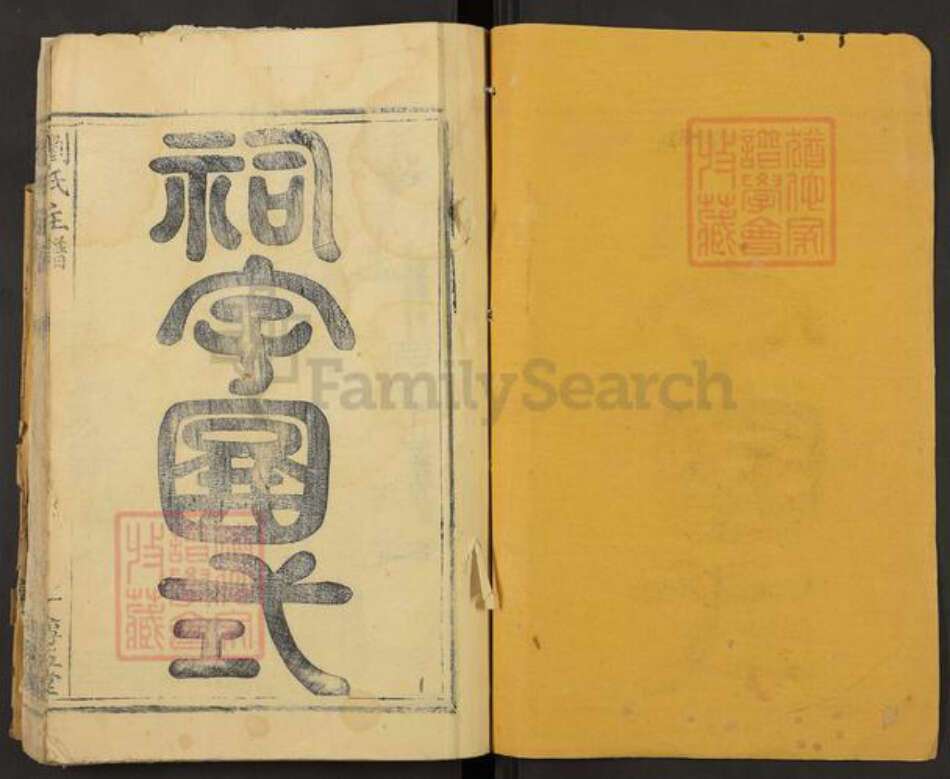 猶他家
譜學會
收藏
祠宇圖式
劉氏主譜
猶他家
譜學會
收藏
FamilySearch